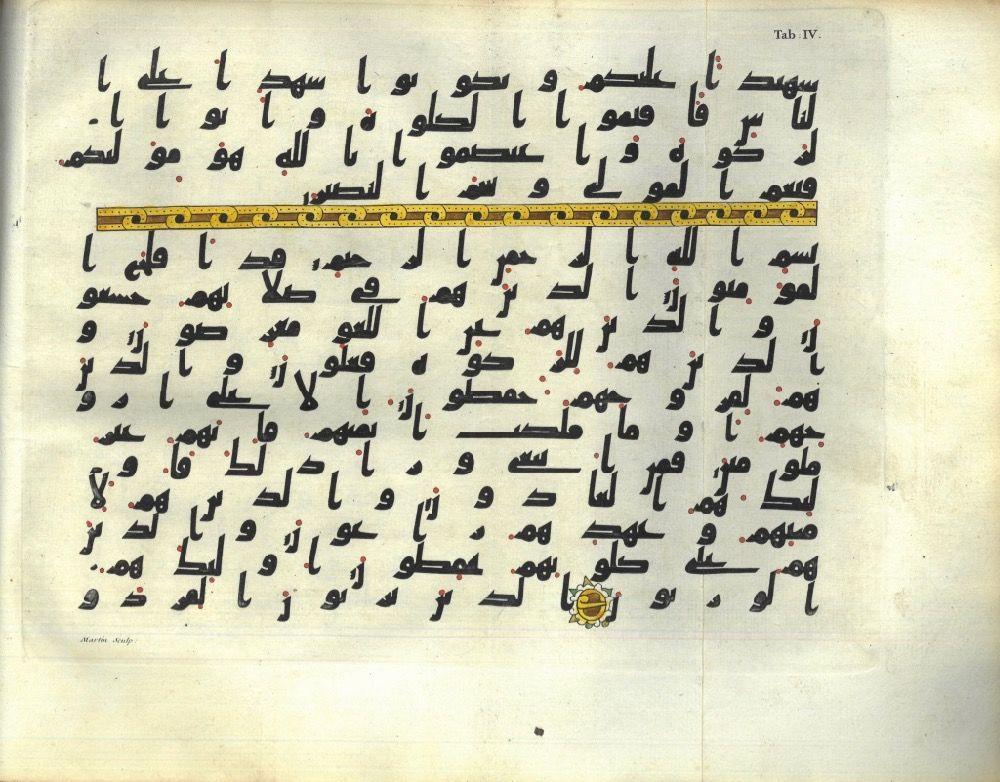 Tab. IV.
شهيدا عليكم وتكونوا شهدا على ا
لناس فاقيموا الصلوة واتوا ا
لزكوة واعتصموا بالله هو موليكم
فنعم المولى ونعم النصير
بسم الله الرحمن الرحيم قد افلح ا
لمومنون الذين هم في صلاتهم خشعو
ن والذين هم عن اللغو معرضون و
الذين هم للزكوة فعلون والذين
هم لفروجهم حفظون الا على ازو
جهم او ما ملكت ايمنهم فانهم غير
ملومين فمن ابتغى ورا ذلك فاو
ليك هم العادون والذين هم لا
منتهم وعهدهم راعون والذين
هم على صلوتهم يحفظون اوليك هم
الورثون الذين يرثون الفردو
Martin Sculp: